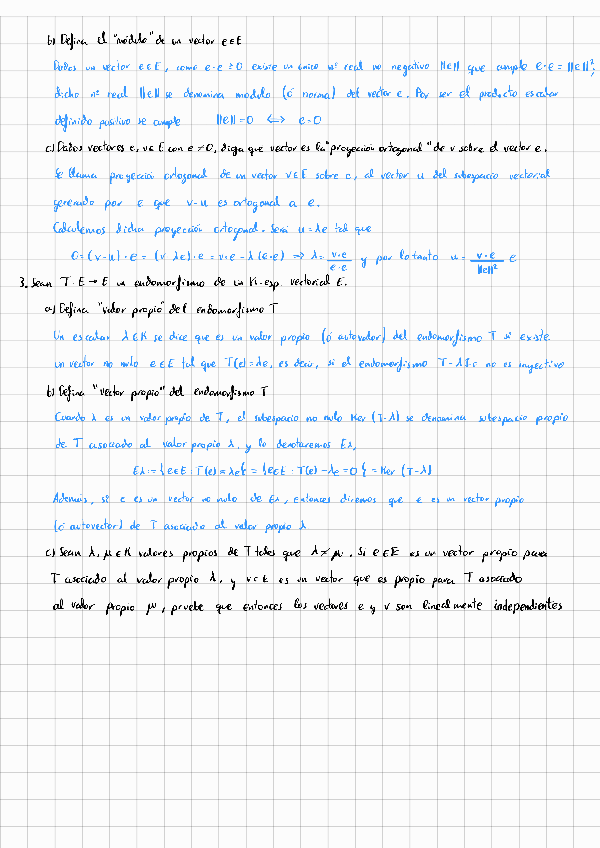 b) Defina el "módulo" de un vector e∈E
Dados un vector e∈E, como e·e≥0 existe un único nº real no negativo ||e|| que cumple e·e=||e||²;
dicho nº real ||e|| se denomina módulo (ó norma) del vector e. Por ser el producto escalar
definido positivo se cumple ||e||=0 <-> e=0
c) Dados vectores e, v∈E con e≠0, diga que vector es la "proyección ortogonal" de v sobre el vector e.
Se llama proyección ortogonal de un vector v∈E sobre e, al vector u del subespacio vectorial
generado por e que v-u es ortogonal a e.
Calculemos dicha proyección ortogonal. Será u=λe tal que
0=(v-u)·e=(v λe)·e=v·e-λ(e·e) => λ= v·e / e·e y por lo tanto u= v·e / ||e||² e
3. Sean T: E→E un endomorfismo de un K-esp. vectorial E.
a) Defina "valor propio" del endomorfismo T
Un escalar λ∈K se dice que es un valor propio (ó autovalor) del endomorfismo T si existe
un vector no nulo e∈E tal que T(e)=λe, es decir, si el endomorfismo T-λId no es inyectivo
b) Defina "vector propio" del endomorfismo T
Cuando λ es un valor propio de T, el subespacio no nulo Ker (T-λ) se denomina subespacio propio
de T asociado al valor propio λ, y lo denotaremos Eλ,
Eλ:={e∈E : T(e)=λe}={e∈E : T(e)-λe=0}=Ker (T-λ)
Además, si e es un vector no nulo de Eλ, entonces diremos que e es un vector propio
(ó autovector) de T asociado al valor propio λ
c) Sean λ, μ∈K valores propios de T tales que λ≠μ. Si e∈E es un vector propio para
T asociado al valor propio λ, y v∈E es un vector que es propio para T asociado
al valor propio μ, pruebe que entonces los vectores e y v son linealmente independientes